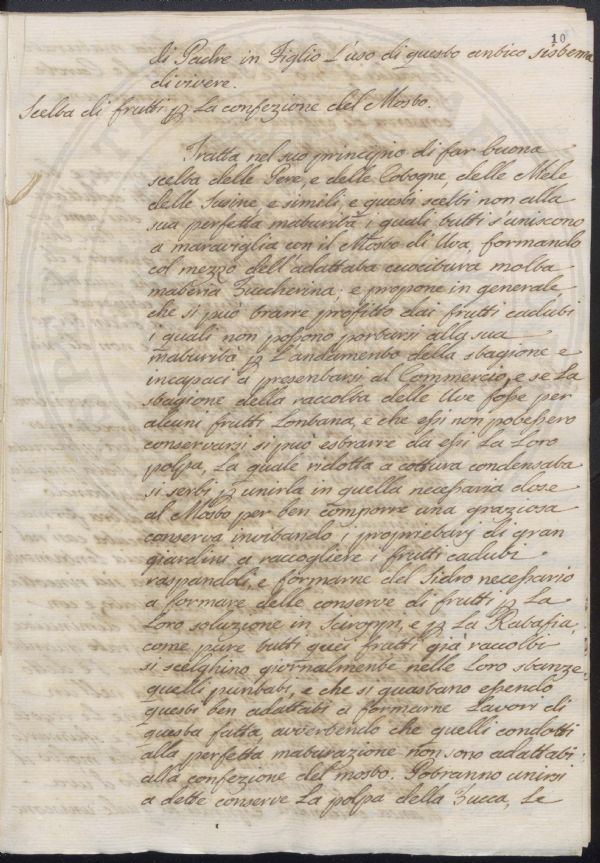 10
di Padre in Figlio L'uso di questo antico sistema
di vivere.
Scelta di frutti p La confezione del Mosto.
Tratta nel suo principio di far buona
scelta delle Pere, e delle Cotogne, delle Mele
delle Susine, e simili, e questi scelti non alla
sua perfetta maturità i quali tutti s'uniscono
a maraviglia con il Mosto di Uva, formando
col mezzo dell'adattata cuocitura molta
materia Zuccherina; e propone in generale
che si può trarre profitto dai frutti caduti
i quali non possono portarsi alla sua
maturità p L'andamento della stagione e
incapaci a presentarsi al Commercio, e se La
stagione della raccolta delle Uve fosse per
alcuni frutti Lontana, e che essi non potessero
conservarsi si può estrarre da essi La Loro
polpa, La quale ridotta a cottura condensata
si serbi p unirla in quella necessaria dose
al Mosto per ben comporre una graziosa
conserva invitando i proprietarj di gran
giardini a raccogliere i frutti caduti
raspandoli, e formarne del Sidro necessario
a formare delle conserve di frutti p La
Loro soluzione in Sciropp, e p La Ratafia,
come pure tutti quei frutti già raccolti
si scelghino giornalmente nelle Loro stanze
quelli puntati, e che si guastano essendo
questi ben adattati a formarne Lavori di
questa fatta, avvertendo che quelli condotti
alla perfetta maturazione non sono adattati
alla confezione del mosto. Potranno unirsi
a dette conserve La polpa della Zucca, Le